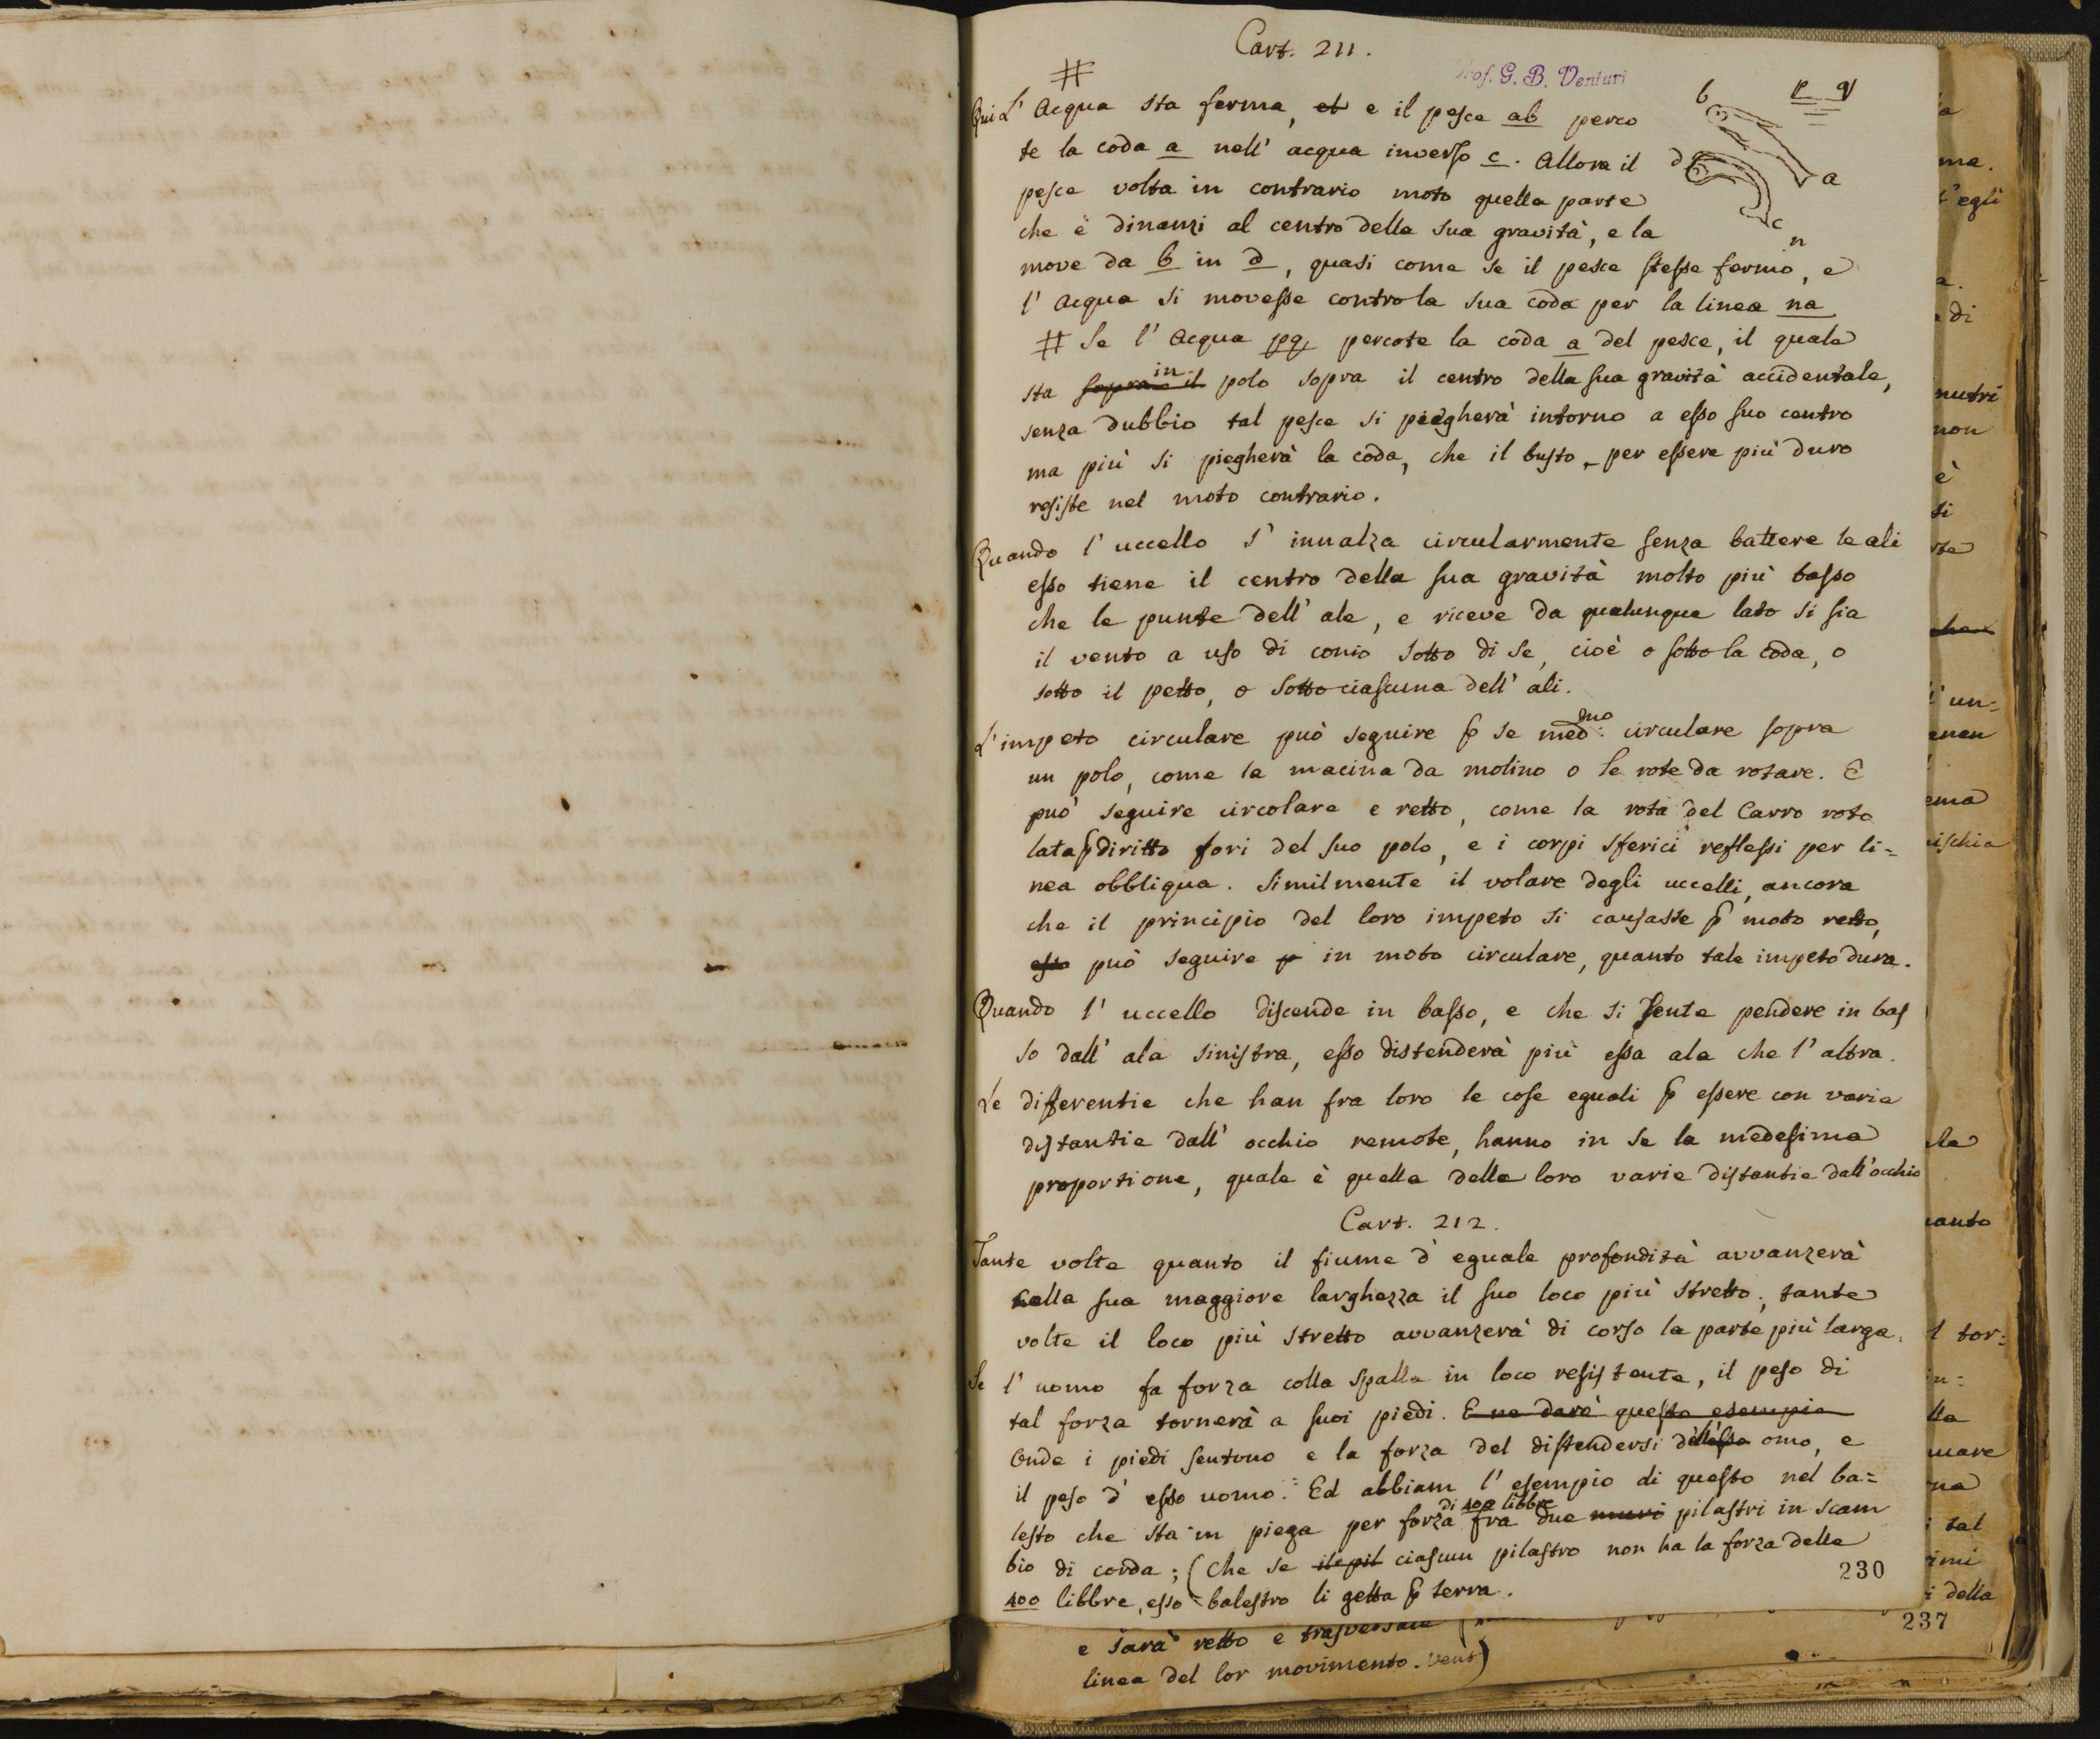 Cart. 211.
Prof. G. B. Venturi
#
Qui L' Acqua sta ferma, et e il pesce ab perco
te la coda a nell' acqua inverso c. Allora il
pesce volta in contrario moto quella parte
che è dinanzi al centro della sua gravità, e la
move da b in d, quasi come se il pesce stesse fermo, e
l' Acqua si movesse contro la sua coda per la linea na
b p q
d a
c
n
# Se l' Acqua pq, percote la coda a del pesce, il quale
sta sopra il in polo sopra il centro della sua gravità accidentale,
senza dubbio tal pesce si piegherà intorno a esso suo centro
ma più si piegherà la coda, che il busto, per essere più duro
resiste nel moto contrario.
Quando l' uccello s' innalza circularmente senza battere le ali
esso tiene il centro della sua gravità molto più basso
che le punte dell' ale, e riceve da qualunque lato si sia
il vento a uso di conio sotto di se, cioè o sotto la coda, o
sotto il petto, o sotto ciascuna dell' ali.
L' impeto circulare può seguire p se med:mo circulare sopra
un polo, come la macina da molino o le rote da rotare. E
può seguire circolare e retto, come la rota del Carro roto
lata p diritto fori del suo polo, e i corpi sferici reflessi per li=
nea obbliqua. Similmente il volare degli uccelli, ancora
che il principio del loro impeto si causasse p moto retto,
esso può seguire p in moto circulare, quanto tale impeto dura.
Quando l' uccello discende in basso, e che si sente pendere in bas
so dall' ala sinistra, esso distenderà più essa ala che l' altra.
Le differentie che han fra loro le cose eguali p essere con varie
distantie dall' occhio remote, hanno in se la medesima
proportione, quale è quella delle loro varie distantie dall' occhio
Cart. 212.
Tante volte quanto il fiume d' eguale profondità avvanzerà
nella sua maggiore larghezza il suo loco più stretto, tante
volte il loco più stretto avvanzerà di corso la parte più larga.
Se l' uomo fa forza colla spalla in loco resistente, il peso di
tal forza tornerà a suoi piedi. E ne darè questo esempio
Onde i piedi sentono e la forza del distendersi dell'esso omo, e
il peso d' esso uomo. Ed abbiam l' esempio di questo nel ba=
lesto che sta in piega per forza di 400 libbre fra due muri pilastri in scam
bio di corda; (Che se il pil ciascun pilastro non ha la forza delle
400 libbre, esso balestro li getta p terra.
230
e sarà retto e trasversale
linea del lor movimento. Vent)
237
ma.
s' egli
di
nutri
non
è
si
un=
ema
ischia
ala
tor=
in=
lla
na
tal
della